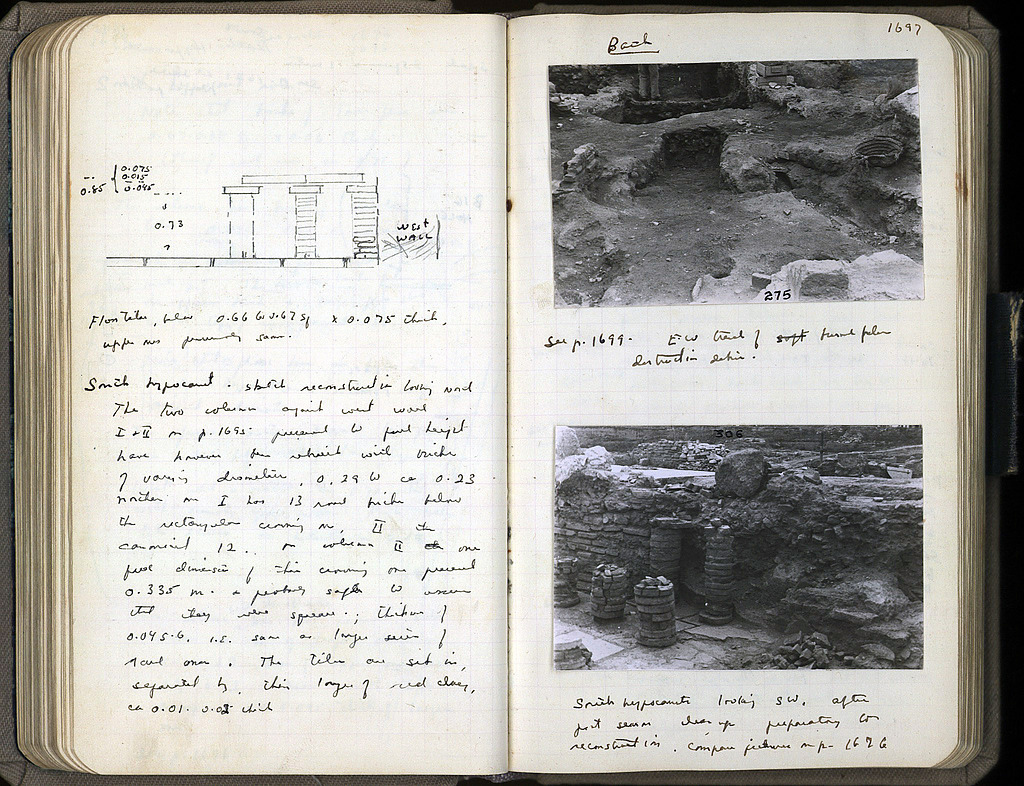 0.85
0.075
0.015
0.045
0.73
?
WEST
WALL
Floor tiles, below 0.66 to 0.67 sq x 0.075 thick,
upper same.
South hypocaust. sketch reconstruction looking west
The two columns against west wall
I + II on p. 1695 preserved to full height
have however been rebuilt with bricks
of varying diameter, 0.29 to ca 0.23
I has 13 round bricks below
the rectangular crowning one, II the
canonical 12. on column II one
full dimension of this crowning one preserved
0.335 m. probably safe to assume
that they were square; thickness of
0.045.6, i.e. same as larger series of
round ones. The tiles are set in,
separated by, thin layers of red clay,
ca 0.01. 0.02 thick
1697
Bath
275
See p. 1699. E-W of soft
destruction debris.
306
South hypocausts looking SW, after
post season clean up preparatory to
reconstruction. Compare pictures on p. 1676